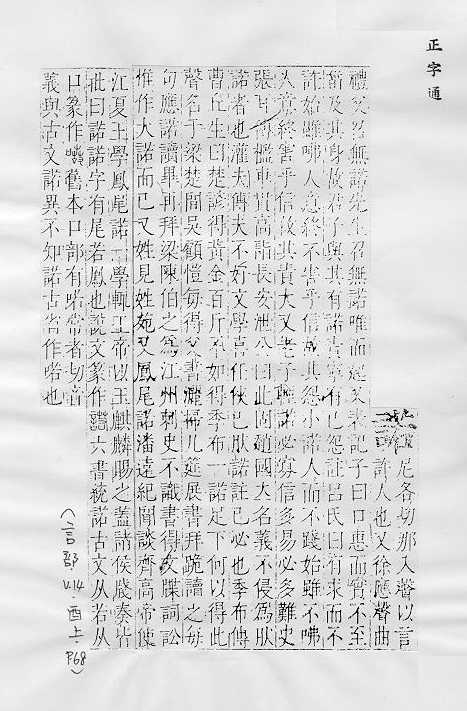 正字通
尼各切那入聲以言
許人也又徐應聲曲
禮父召無諾先生召無諾唯而起又表記子曰口惠而實不至
菑及其身故君子與其有諾責寧有已怨註呂氏曰有求而不
許始雖咈人意終不害乎信故其怨小諾人而不踐始雖不咈
人意終害乎信故其責大又老子輕諾必寡信多易必多難史
張耳傳檻車貫高詣長安泄公曰此固趙國大名義不侵爲肰
諾者也灌夫傳夫不好文學喜任俠已肰諾註已必也季布傳
曹丘生曰楚諺得黃金百斤不如得季布一諾足下何以得此
聲名于梁楚間吳顧愷每得父書灑掃几筵展書拜跪讀之每
句應諾讀畢再拜梁陳伯之爲江州刺史不識書得文牒詞訟
惟作大諾而已又姓見姓苑又鳳尾諾潘遠紀聞談齊高帝使
江夏王學鳳尾諾一學輒工帝以玉麒麟賜之蓋諸侯牋奏皆
批曰諾諾字有尾若鳳也說文篆作六書統諾古文从若从
口篆作舊本口部有喏常者切音
義與古文諾異不知諾古省作喏也
(言部 V.14．酉上．P68)